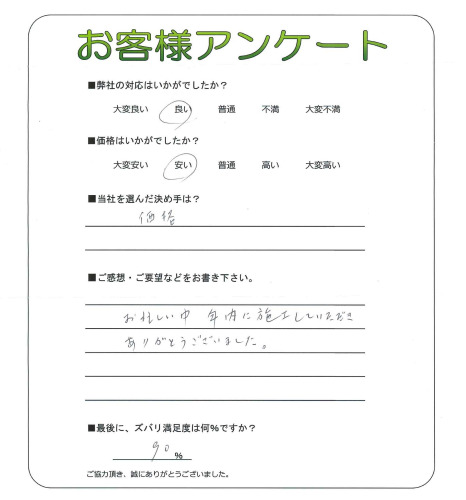 お客様アンケート
■弊社の対応はいかがでしたか？
大変良い 良い 普通 不満 大変不満
■価格はいかがでしたか？
大変安い 安い 普通 高い 大変高い
■当社を選んだ決め手は？
価格
■ご感想・ご要望などをお書き下さい。
お忙しい中 年内に施工していただき
ありがとうございました。
■最後に、ズバリ満足度は何％ですか？
90 %
ご協力頂き、誠にありがとうございました。